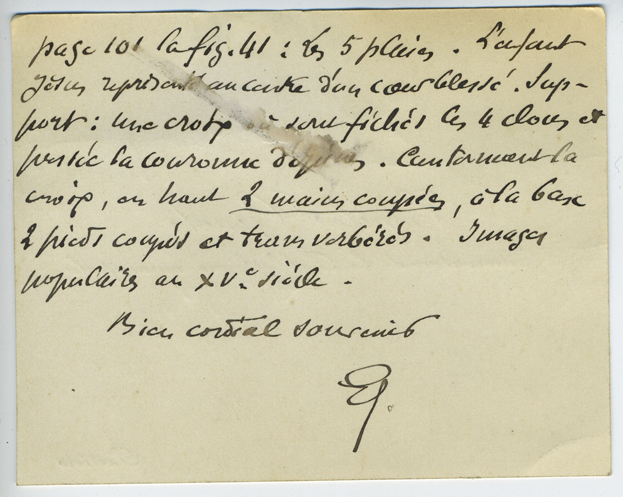 page 101 la fig. 41 : les 5 plaies. L'enfant
Jésus représenté au centre d'un coeur blessé. Sup-
port : une croix où sont fichés les 4 clous et
la couronne d'épines. Cantonnant la
croix, en haut 2 mains coupées, à la base
2 pieds coupés et transverbérés. Images
populaires au XVe siècle.
Bien cordial souvenir